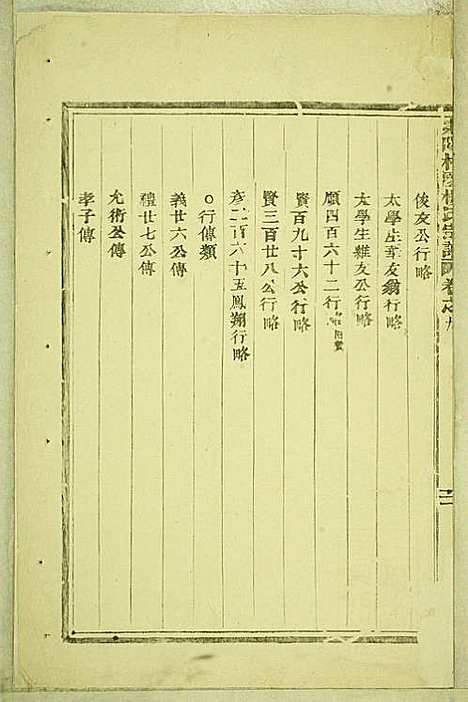 俊友公行略
太學生華友翁行略
太學生維友公行略
願四百六十二行略附贊
賢百九十六公行略
賢三百廿八公行略
彥二百六十五鳳翔行略
○行傳類
義廿六公傳
禮廿七公傳
允術公傳
孝子傳